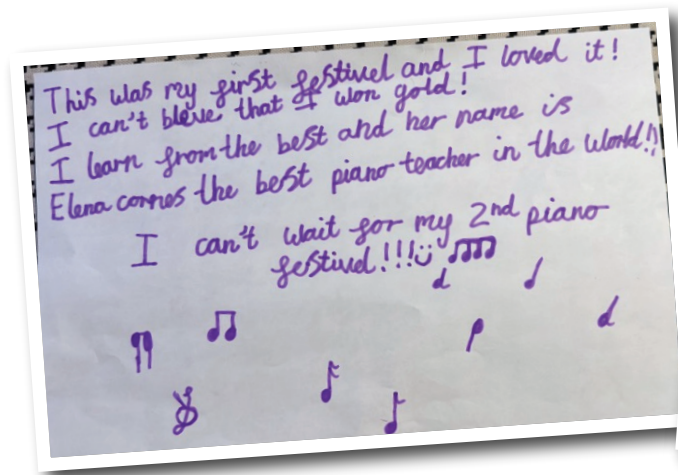 This was my first festivel and I loved it!
I can't bleve that I won gold!
I learn from the best and her name is
Elena cornes the best piano teacher in the World!!
I can't wait for my 2nd piano
festivel!!!